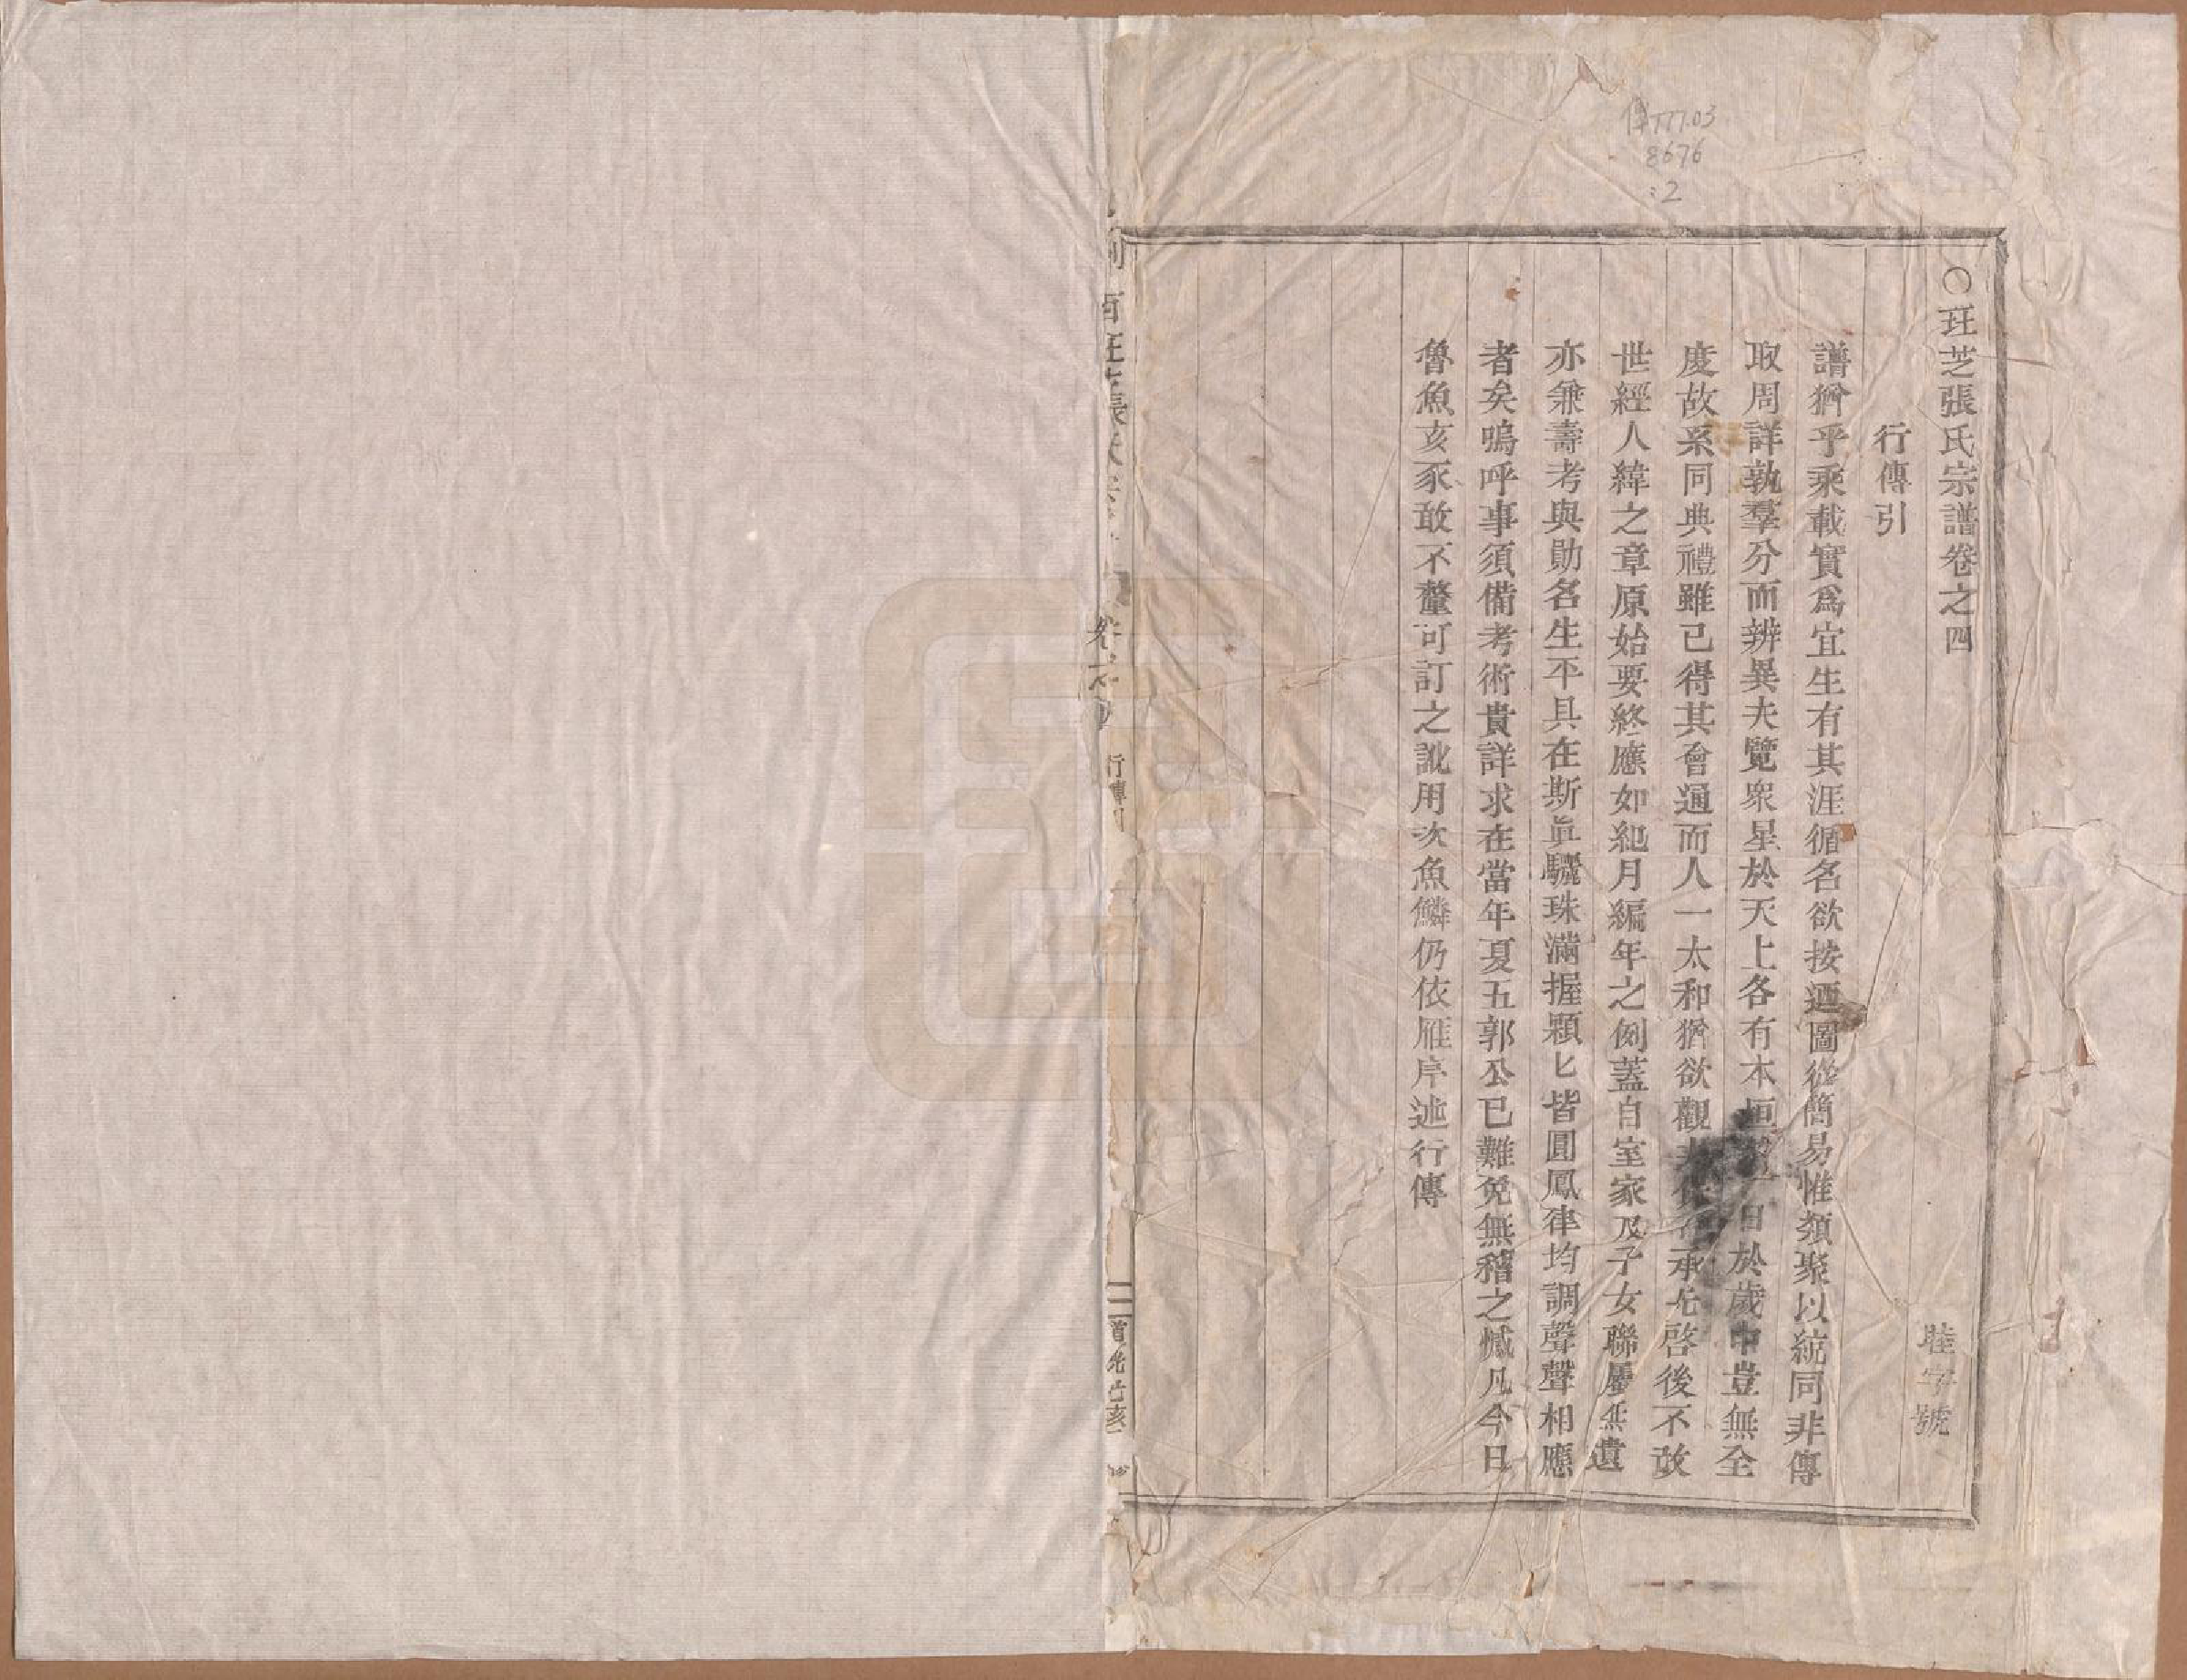 傳777.03
8676
:2
〇珏芝張氏宗譜卷之四
睦字號
行傳引
譜猶乎乘載實爲宜生有其涯循名欲按廼圖從簡易惟類聚以統同非傳
取周詳孰羣分而辨異夫覽衆星於天上各有本垣 日於歲中豈無全
度故系同典禮雖已得其會通而人一太和猶欲觀 承先啓後不敢
世經人緯之章原始要終應如紀月編年之例蓋自室家及子女聯屬無遺
亦兼壽考與勛名生平具在斯眞驪珠滿握顆匕皆圓鳳律均調聲聲相應
者矣嗚呼事須備考術貴詳求在當年夏五郭公已難免無稽之憾凡今日
魯魚亥豕敢不釐可訂之訛用次魚鱗仍依雁序述行傳
行傳引